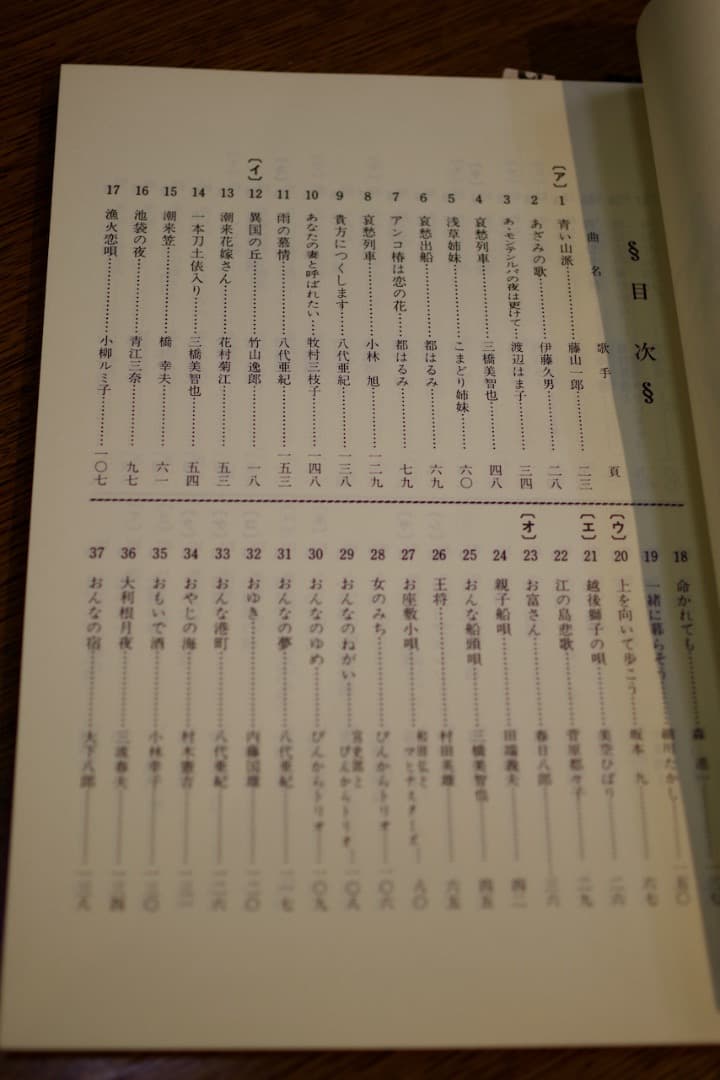 §目次§
曲名 歌手 頁
〔ア〕
1 青い山派 藤山一郎 二三
2 あざみの歌 伊藤久男 二八
3 あゝモンテンルパの夜は更けて 渡辺はま子 三四
4 哀愁列車 三橋美智也 四八
5 浅草姉妹 こまどり姉妹 六〇
6 哀愁出船 都はるみ 六九
7 アンコ椿は恋の花 都はるみ 七九
8 哀愁列車 小林旭 一二九
9 貴方につくします 八代亜紀 一三八
10 あなたの妻と呼ばれたい 牧村三枝子 一四八
11 雨の慕情 八代亜紀 一五三
〔イ〕
12 異国の丘 竹山逸郎 一八
13 潮来花嫁さん 花村菊江 五三
14 一本刀土俵入り 三橋美智也 五四
15 潮来笠 橋幸夫 六一
16 池袋の夜 青江三奈 九七
17 漁火恋唄 小柳ルミ子 一〇七
18 命かれても 森進一
19 一緒に暮らそう 細川たかし 一五〇
〔ウ〕
20 上を向いて歩こう 坂本九 六七
〔エ〕
21 越後獅子の唄 美空ひばり 二六
22 江の島悲歌 菅原都々子 二九
〔オ〕
23 お富さん 春日八郎 三六
24 親子船唄 田端義夫 四二
25 おんな船頭唄 三橋美智也 四五
26 王将 村田英雄 六五
27 お座敷小唄 和田弘とマヒナスターズ 八〇
28 女のみち ぴんからトリオ 一〇六
29 おんなのねがい 宮史郎とぴんからトリオ 一〇八
30 おんなのゆめ ぴんからトリオ 一〇九
31 おんなの夢 八代亜紀 一一七
32 おゆき 内藤国雄 一二〇
33 おんな港町 八代亜紀 一二六
34 おやじの海 村木賢吉 一三一
35 おもいで酒 小林幸子 一三〇
36 大利根月夜 三波春夫 一三四
37 おんなの宿 大下八郎 一三八